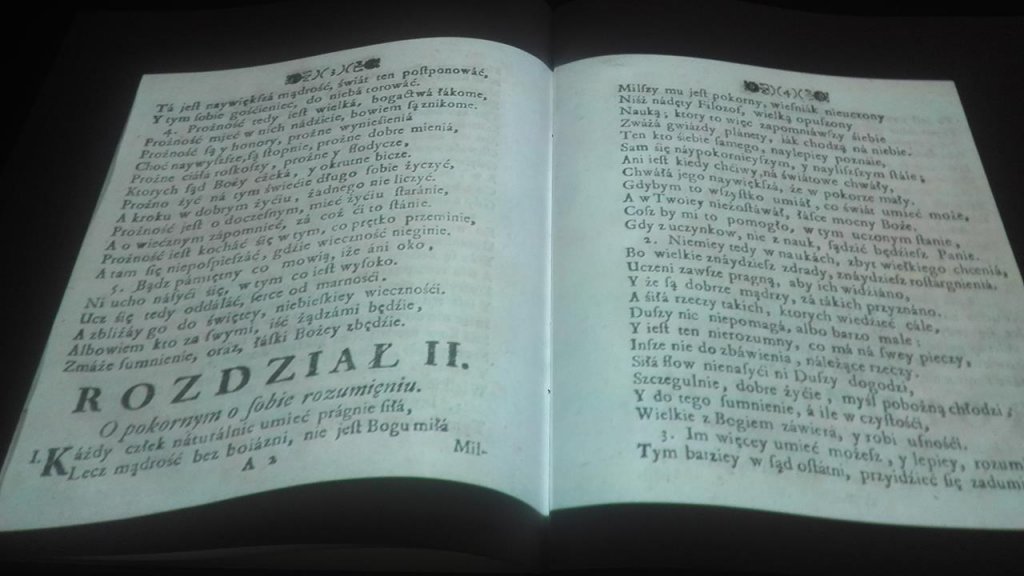 )(3)(
Tá jeſt naywiękſza mądrość, świát ten poſtponowáć,
Y tym ſobie gościeniec, do niebá torowáć.
4. Prożność tedy ieſt wielka, bogactwá łákome,
Prożność mieć w nich nádźieię, bowiem ſą znikome.
Prożność ſą y honory, prożne wynieſienia
Choć naywyſzſze, ſą ſtopnie, prożne dobre mienia,
Prożne ciáłá roſkoſzy, prożne y ſłodycze,
Ktorych ſąd Boży czeka, y okrutne bicze.
Prożno żyć ná tym świećie długo ſobie życzyć,
A kroku w dobrym życiu, żadnego nie liczyć.
Prożność jeſt o doczeſnym, mieć życiu ſtaránie,
A o wiecznym zápomnieć, zá coż ći to ſtánie.
Prożność ieſt kocháć ſię w tym, co prętko przeminie,
A tam ſię niepoſpieſzáć, gdzie wieczność nieginie.
5. Bądz pámiętny co mowią, iże áni oko,
Ni ucho náſyći ſię, w tym co ieſt wyſoko.
Ucz ſię tedy oddáláć, ſerce od marnośći.
A zbliżáy go do świętey, niebieſkiey wiecznośći.
Albowiem kto za ſwymi, iść żądzámi będzie,
Zmáże ſumnienie, oraz, łáſki Bożey zbędzie.
ROZDZIAŁ II.
O pokornym o ſobie rozumieniu.
1. Káżdy człek náturálnie umieć prágnie ſiłá,
Lecz mądrość bez boiáźni, nie jeſt Bogu miłá
A 2
Mil-
)(4)(
Milſzy mu jeſt pokorny, wieſniák nieuczony
Niżź nádęty Filozof, wielką opuſzony
Nauką; ktory to więc zapomniawſzy ſiebie
Zważá gwiazdy plánety, iák chodzą ná niebie.
Ten kto ſiebie ſamego, naylepiey poznáie,
Sam ſię náypokornieyſzym, y nayliſzſzym ſtáie,
Ani ieſt kiedy chćiwy, ná świátowe chwáły,
Chwáłá jego naywiękſzá, że w pokorze máły.
Gdybym to wſzyſtko umiáł, co świát umieć może,
A w Twoiey niezoſtáwáł, łáſce mocny Boże.
Coſz by mi to pomogło, w tym uczonym ſtanie,
Gdy z uczynkow, nie z nauk, ſądzić będzieſz Panie.
2. Niemiey tedy w naukách, zbyt wielkiego chcenia,
Bo wielkie znáydzieſz zdrady, znáydzieſz roſtargnienia.
Uczeni zawſze pragną, aby ich widziáno,
Y że ſą dobrze mądrzy, zá tákich przyznáno.
A ſiłá rzeczy takich, ktorych wiedzieć cále,
Duſzy nic niepomagá, albo barzo male:
Y ieſt ten nierozumny, co má ná ſwey pieczy,
Inſze nie do zbáwienia, náleżące rzeczy.
Siłá ſłow nienaſyći ni Duſzy dogodzi,
Szczegulnie, dobre życie, myſl pobożná chłodzi;
Y do tego ſumnienie, á ile w czyſtośći,
Wielkie z Bogiem záwiera, y robi ufnośći.
3. Im więcey umieć możeſz, y lepiey, rozum
Tym barziey w ſąd oſtátni, przyidźieć ſię zadumi